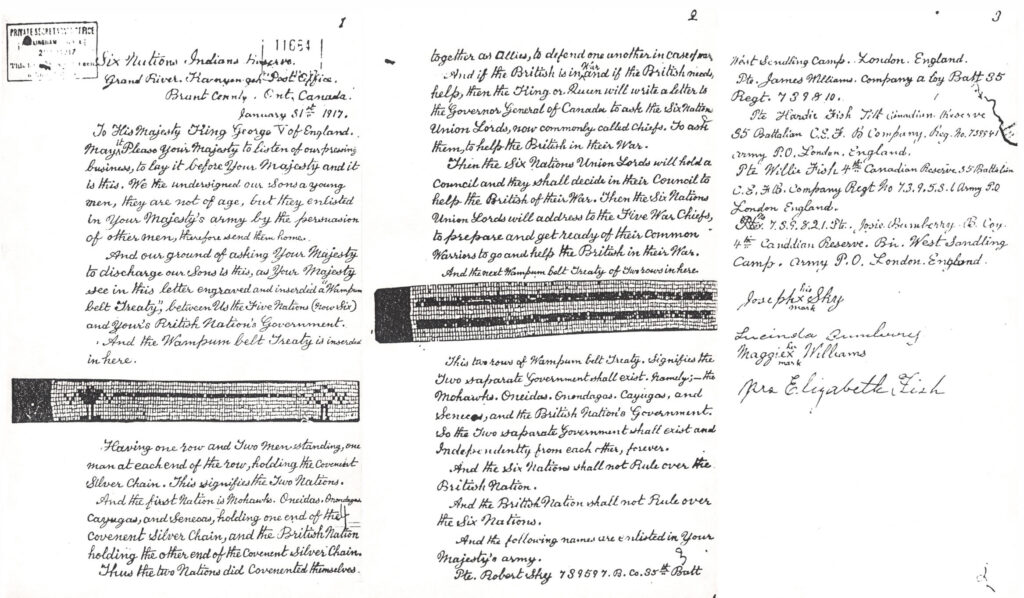 1
PRIVATE SECRETARY'S OFFICE
11664
Six Nations Indians Reserve.
Grand River. Kanyengeh Post Office.
Brant County. Ont, Canada.
January 31st 1917.
To His Majesty King George V of England.
May it Please Your Majesty to listen of our pressing
business, to lay it before Your Majesty and it
is this. We the undersigned our Sons a young
men, they are not of age, but they enlisted
in Your Majesty's army by the persuasion
of other men, therefore send them home.
And our ground of asking Your Majesty
to discharge our Sons is this, as Your Majesty
see in this letter engraved and inserdid a Wampum
belt Treaty", between Us the Five Nations (now Six)
and Your's British Nation's Government.
And the Wampum belt Treaty is inserded
in here.
Having one row and Two Men standing, one
man at each end of the row, holding the Covenent
Silver Chain. This signifies the Two Nations.
And the first Nation is Mohawks. Oneidas. Onondagas
Cayugas, and Senecas, holding one end of the
Covenent Silver Chain, and the British Nation
holding the other end of the Covenent Silver Chain.
Thus the two Nations did Covenented themselves
2
together as Allies, to defend one another in case of war.
And if the British is in War and if the British needs,
help, then the King or Quun will write a letter to
the Governor General of Canada to ask the Six Nation
Union Lords, now commonly called Chiefs. To ask
them, to help the British in their War.
Then the Six Nations Union Lords will hold a
Council and they shall decide in their Council to
help the British of their War. Then the Six Nations
Union Lords will address to the Five War Chiefs,
to prepare and get ready of their Common
Warriors to go and help the British in their War.
And the next Wampum belt Treaty of Two rows in here.
This two rows of Wampum belt Treaty. Signifies the
Two saparate Government shall exist. Namely;- the
Mohawks. Oneidas. Onondagas. Cayugas, and
Senecas, and the British Nation's Government.
So the Two saparate Government shall exist and
Independently from each other, forever.
And the Six Nations shall not Rule over the
British Nation.
And the British Nation shall not Rule over
the Six Nations.
And the following names are enlisted in Your
Majesty's army.
Pte. Robert Sky 739597. B. Co. 35th Batt
3
West Sandling Camp. London. England.
Pte. James Williams. Company a Coy Batt 35
Regt. 739810.
Pte Hardie Fish Canadian Reserve
35 Battalian C.E.F. B Company, Reg. No. 739541
Army P.O. London. England.
Pte Willie Fish 4th Canadian Reserve. 35 Battalion
C.E.F. B. Company Regt No 7.3.9.5.5.1 Army P.O
London England.
7.5.9.8.21. Pte. Josie Bumberry B. Coy
4th Canadian Reserve. Bn. West Sandling
Camp. Army P.O. London. England.
Joseph his x mark Sky
Lucinda Bumberry
Maggie her x mark Williams
Mrs Elizabeth Fish